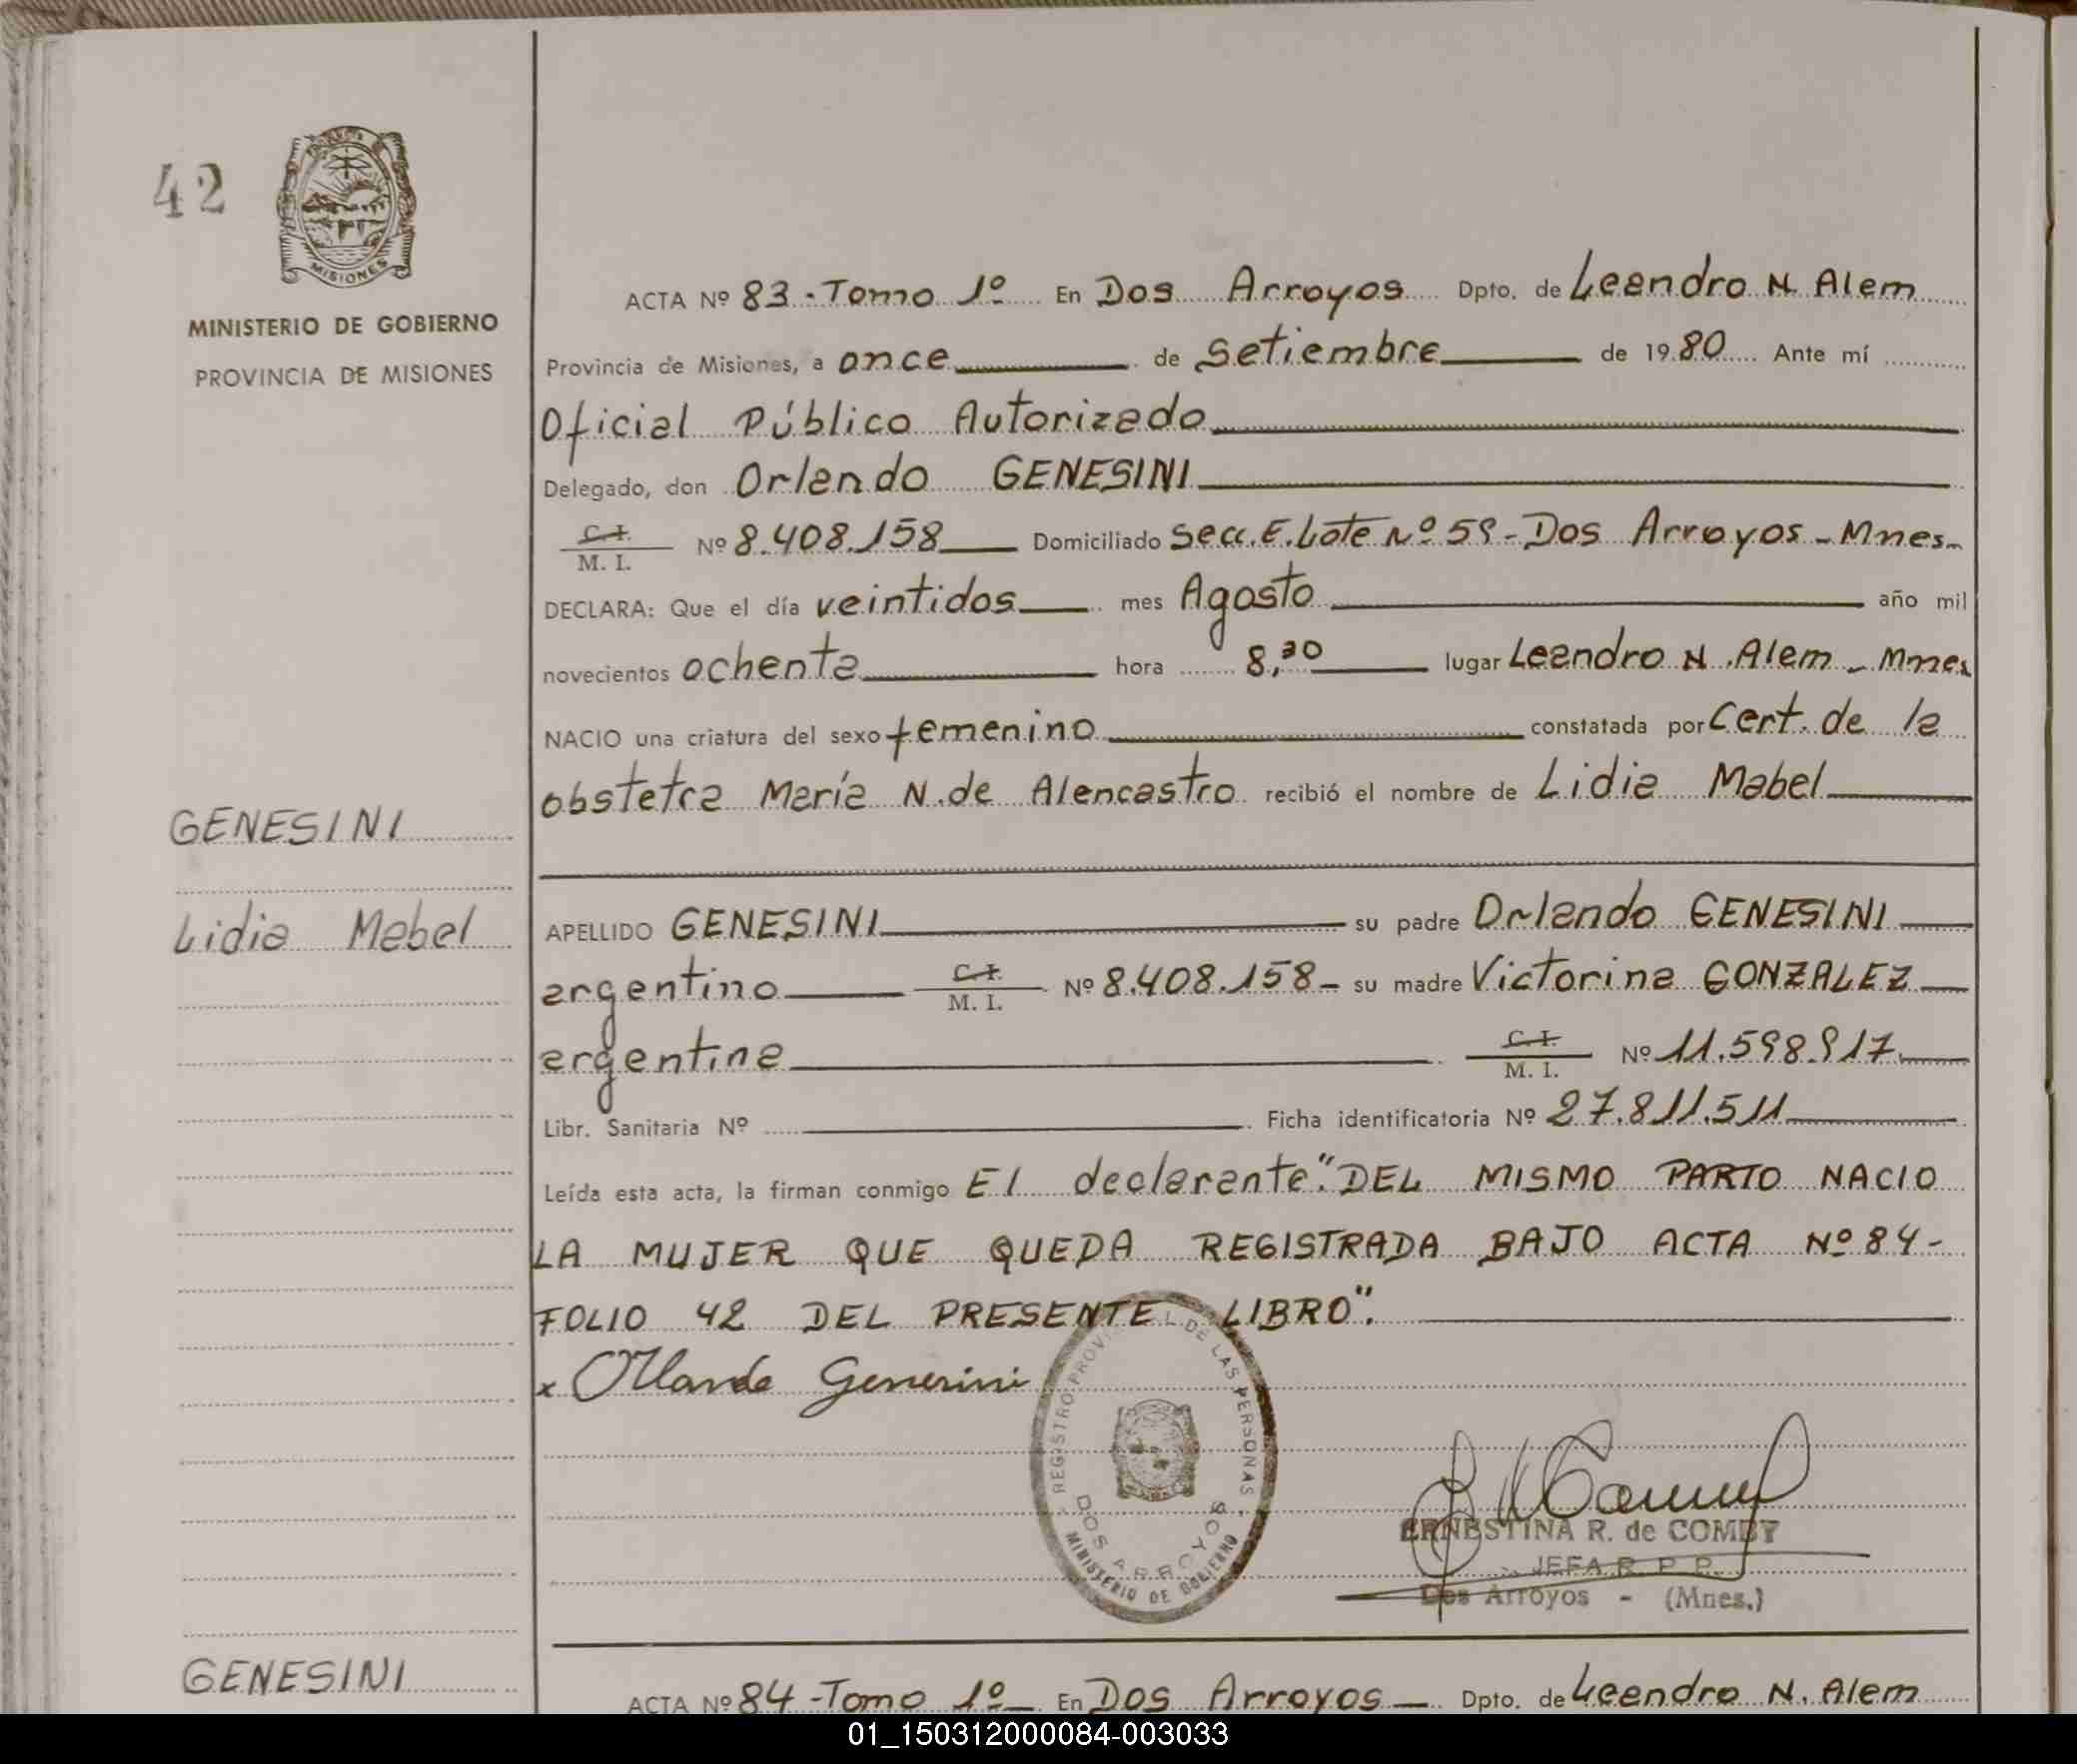 42
MISIONES
MINISTERIO DE GOBIERNO
PROVINCIA DE MISIONES
ACTA Nº 83 - Tomo 1º En Dos Arroyos Dpto. de Leandro N. Alem
Provincia de Misiones, a once de Setiembre de 1980 Ante mí
Oficial Público Autorizado
Delegado, don Orlando GENESINI
C. I.
M. I. Nº 8.408.158 Domiciliado Secc. E. Lote Nº 59 - Dos Arroyos - Mnes-
DECLARA: Que el día veintidos mes Agosto año mil
novecientos ochenta hora 8,30 lugar Leandro N. Alem - Mnes
NACIO una criatura del sexo femenino constatada por Cert. de la
obstetra María N. de Alencastro recibió el nombre de Lidia Mabel
GENESINI
Lidia Mabel
APELLIDO GENESINI su padre Orlando GENESINI
argentino C. I. M. I. Nº 8.408.158 - su madre Victorina GONZALEZ
argentina C. I. M. I. Nº 11.598.917
Libr. Sanitaria Nº Ficha identificatoria Nº 27.811.511
Leída esta acta, la firman conmigo El declarante "DEL MISMO PARTO NACIO
LA MUJER QUE QUEDA REGISTRADA BAJO ACTA Nº 84 -
FOLIO 42 DEL PRESENTE LIBRO".
x Orlando Genesini
REGISTRO PROVINCIAL DE LAS PERSONAS
DOS ARROYOS
MINISTERIO DE GOBIERNO
ERNESTINA R. de COMBY
JEFA R. P. P.
Dos Arroyos - (Mnes.)
GENESINI
ACTA Nº 84 - Tomo 1º En Dos Arroyos Dpto. de Leandro N. Alem
01_150312000084-003033